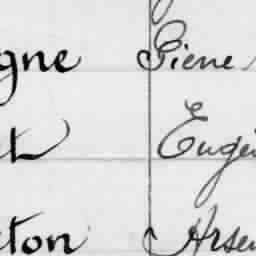 gne Piene
t Eugè
ton Arsen